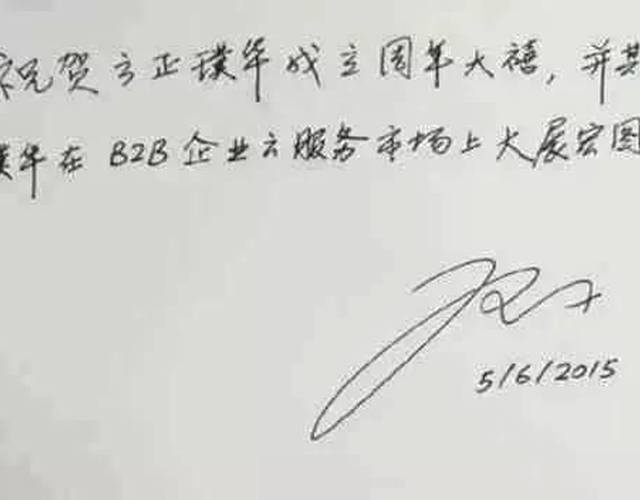 祝贺方正璞华成立周年大禧，并
璞华在 B2B 企业云服务市场上大展宏图
5/6/2015